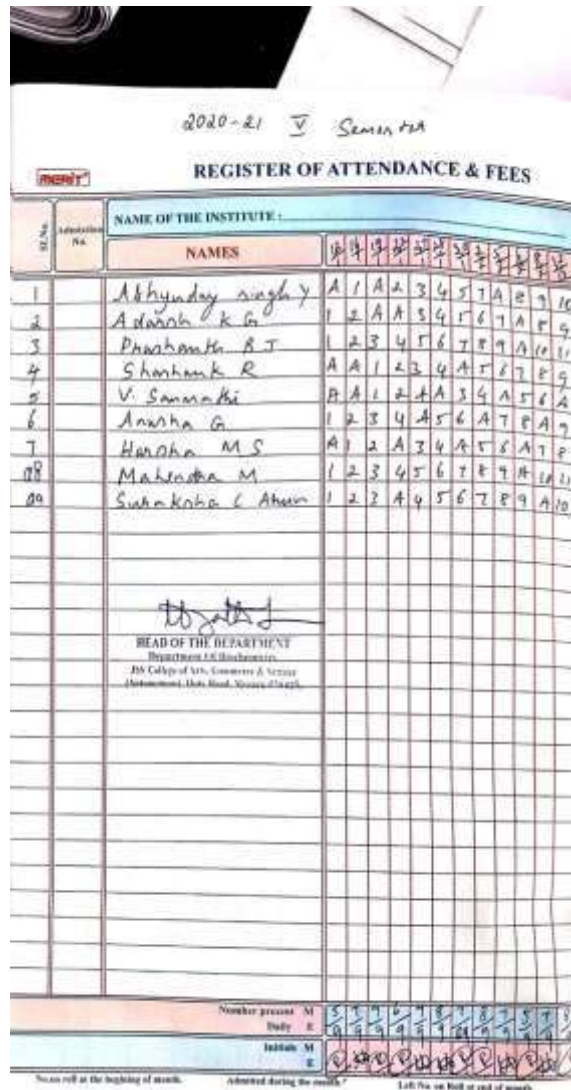 2020-21 V Semester
MERIT
REGISTER OF ATTENDANCE & FEES
SL.No.
Admission No.
NAME OF THE INSTITUTE :
NAMES
1 Abhyuday singh Y A 1 A 2 3 4 5 7 A 8 9 10
2 Adarsh K G 1 2 A A 3 4 5 6 7 A 8 9
3 Prashanth B J 1 2 3 4 5 6 7 8 9 A 10 11
4 Shashank R A A 1 2 3 4 A 5 6 7 8 9
5 V. A A 1 2 A A 3 4 A 5 6 A
6 Anusha G 1 2 3 4 A 5 6 A 7 8 A 9
7 Harsha M S A 1 2 A 3 4 A 5 6 A 7 8
08 Mahendra M 1 2 3 4 5 6 7 8 9 A 10 11
09 Suraksha C 1 2 3 A 4 5 6 7 8 9 A 10
HEAD OF THE DEPARTMENT
Department of Biochemistry
JSS College of Arts, Commerce & Science
(Autonomous), Ooty Road, Mysuru-570025
Number present M
Daily E
Initials M
E
No. on roll at the begining of month.
Admitted during the month.
Left No. on Roll at end of month